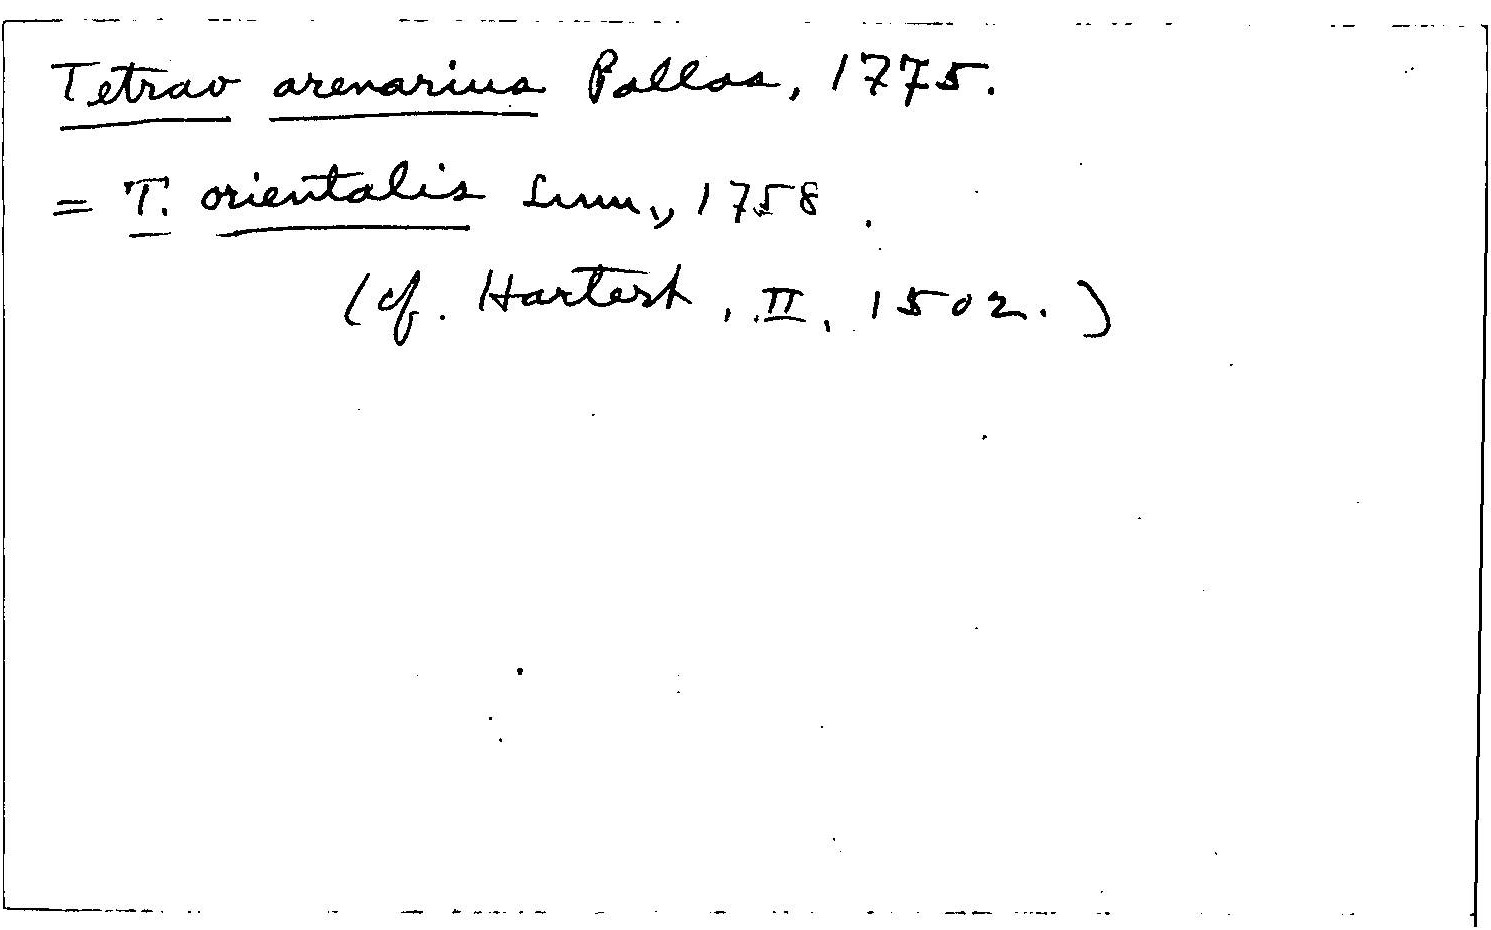 Tetrao arenarius Pallas, 1775.
= T. orientalis Linn., 1758.
(cf. Hartert, II, 1502.)